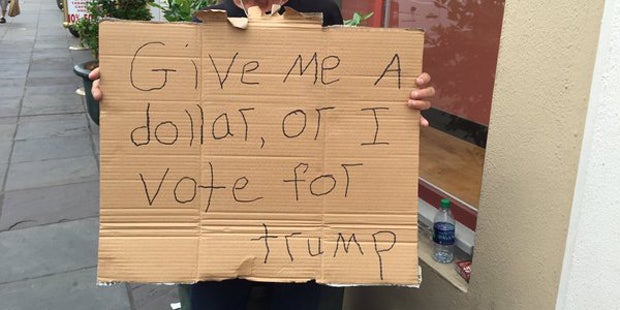 Give Me A
dollar, or I
vote for
trump